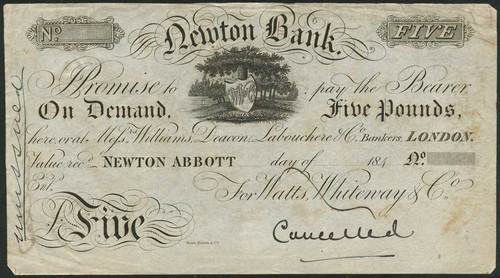 No.
FIVE
Newton Bank.
I Promise to pay the Bearer
On Demand, Five Pounds,
here, or at Messrs. Williams, Deacon, Labouchere & Co. Bankers, LONDON.
Value recd. NEWTON ABBOTT day of 184 No.
Ent.
For Watts, Whiteway & Co.
£ Five
Cancelled
unissued